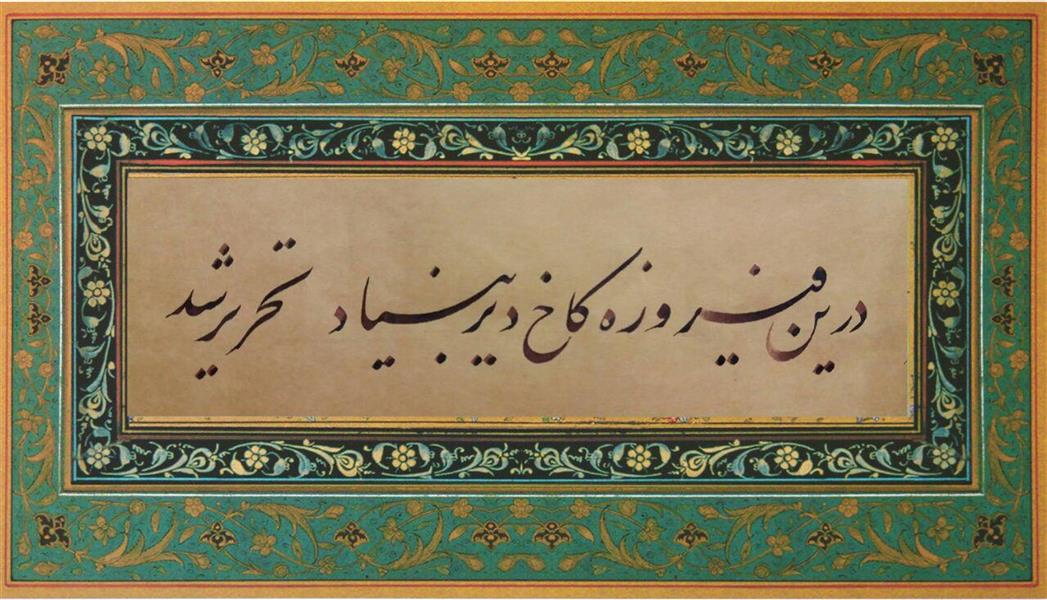 درین فیروزه کاخ دیر بنیاد تحریر شد